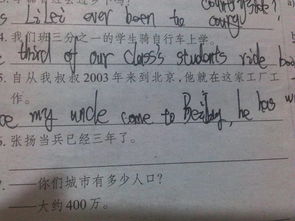 Lilei ever been to
4. 我们班三分之一的学生骑自行车上学。
third of our class's students ride
5. 自从我叔叔2003年来到北京，他就在这家工厂工
作。
my uncle come to Beijing, he has
6. 张扬当兵已经三年了。
7. ——你们城市有多少人口？
——大约400万。